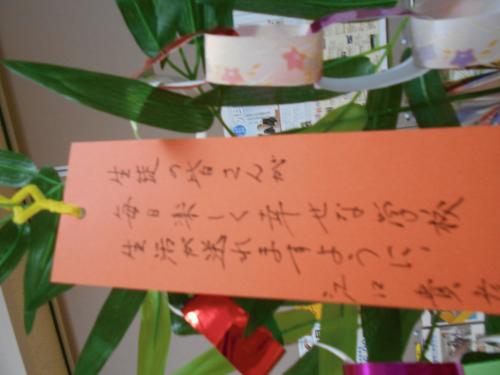 生徒の皆さんが
毎日楽しく幸せな学校
生活が送れますように、
江口 貴